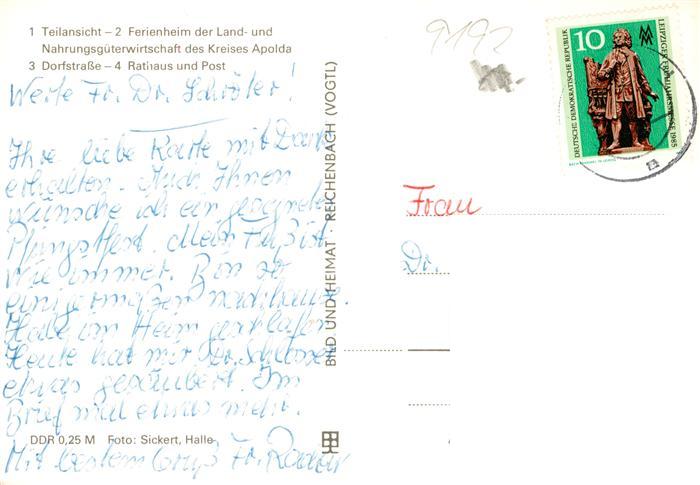 1 Teilansicht – 2 Ferienheim der Land- und
Nahrungsgüterwirtschaft des Kreises Apolda
3 Dorfstraße – 4 Rathaus und Post
Werte Fr. Dr. Schröter!
Ihre liebe Karte mit Dank
erhalten. Auch Ihnen
wünsche ich ein gesegnetes
Pfingstfest. Mein Fuß ist
wie immer. Bin so
einigermaßen nachhause.
Habe im Heim geschlafen
Heute hat mir Dr.
etwas gesäubert. Im
Brief mal etwas mehr.
DDR 0,25 M Foto: Sickert, Halle
Mit bestem Gruß Fr.
BILD UND HEIMAT · REICHENBACH (VOGTL)
9192
10
DEUTSCHE DEMOKRATISCHE REPUBLIK
LEIPZIGER FRÜHJAHRSMESSE 1985
Frau
Dr.